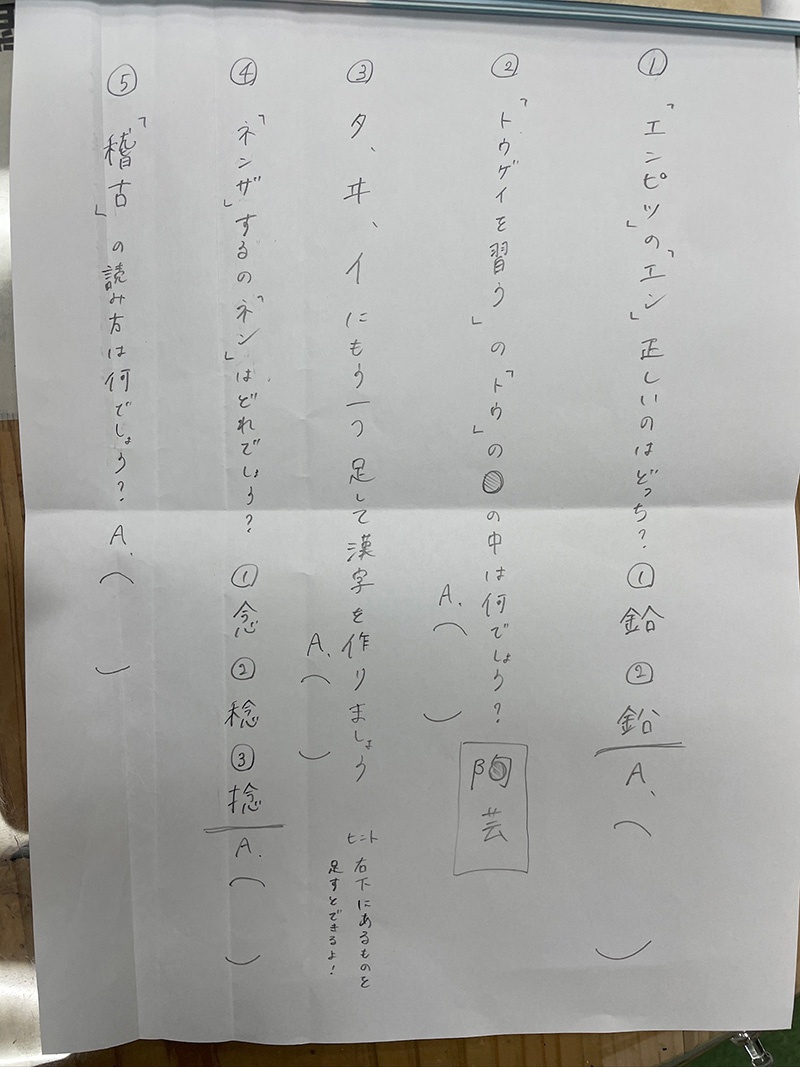 ① 「エンピツ」の「エン」正しいのはどっち？ ① 鉛 ② 鉛 A、（　　）
② 「トウゲイを習う」の「トウ」の●の中は何でしょう？
A、（　　）
陶
芸
③ タ、ヰ、イにもう一つ足して漢字を作りましょう
A、（　　）
ヒント 右下にあるものを
足すとできるよ！
④ 「ネンザ」するの「ネン」はどれでしょう？ ① 念 ② 稔 ③ 捻 A、（　　）
⑤ 「稽古」の読み方は何でしょう？ A、（　　）